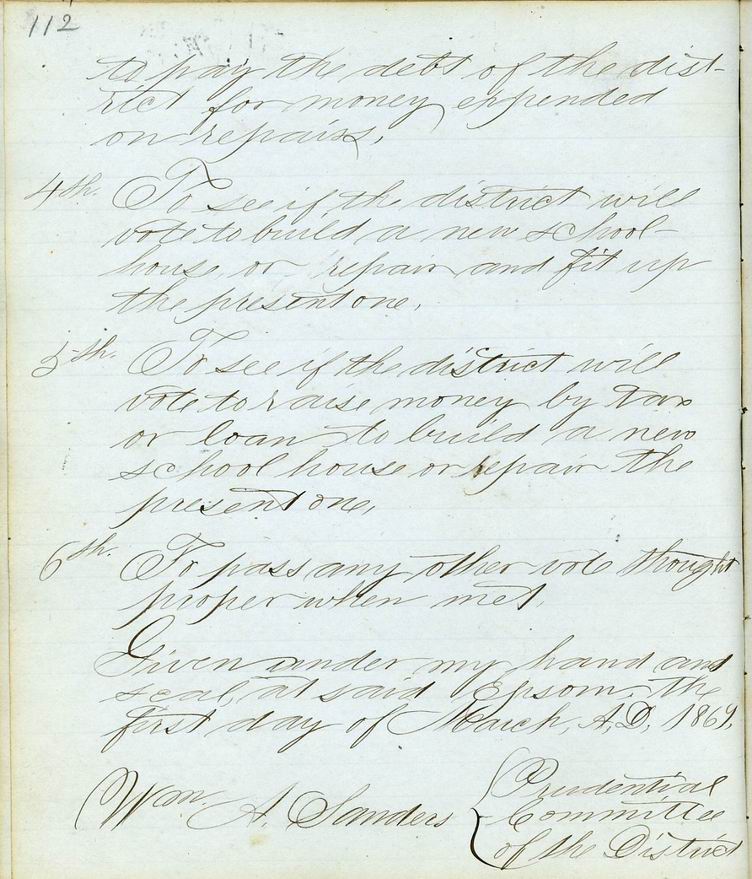 112
to pay the debt of the dist-
rict for money expended
on repairs.
4th. To see if the district will
vote to build a new school-
house or repair and fit up
the present one.
5th. To see if the district will
vote to raise money by tax
or loan to build a new
school house or repair the
present one.
6th. To pass any other vote thought
proper when met.
Given under my hand and
seal, at said Epsom, the
first day of March, A.D. 1869.
Wm. A. Sanders { Prudential
Committee
of the District